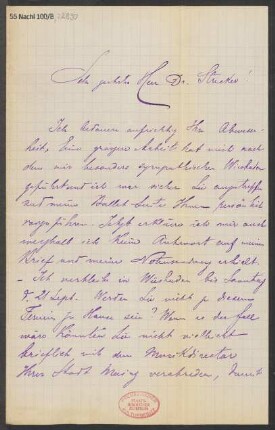 55 Nachl 100/B
Sehr geehrter Herr Dr. Stricker!
Ich bedaure aufrichtig Ihre Abwesen-
heit, Eine grosse Arbeit hat mich nach
dem mir besonders sympathischen Wiesbaden
geführt und ich war
und meine Ballet-Suite Ihnen persönlich
vorzuführen. Jetzt erkläre ich mir auch
weshalb ich keine Antwort auf meine
Brief und meine Notensendung erhielt.
- Ich verbleib in Wiesbaden bis Sonntag
d. 21 Sept. Werden Sie nicht zu diesem
Termin zu Hause sein? Wenn es der Fall
wäre könnten Sie nicht vielleicht
brieflich mit dem Musikdirector
Ihrer Stadt Mainz verabreden, damit